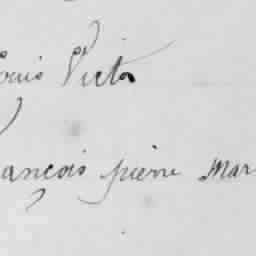 ouis Victor
ançois pierre Mar